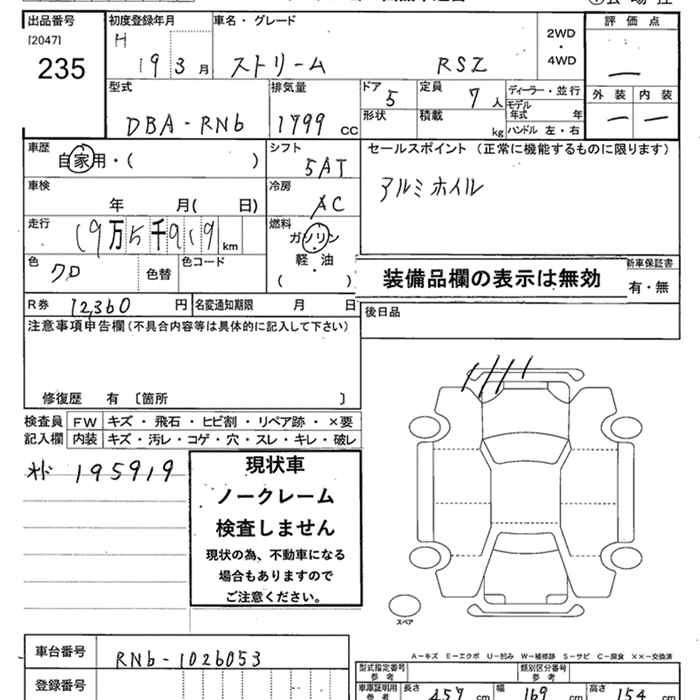 出品番号
[2047]
235
初度登録年月
H 19 3 月
車名・グレード
ストリーム RSZ
2WD
・
4WD
評価点
—
外装 内装
— —
型式
DBA-RN6
排気量
1799 cc
ドア
5
形状
定員
7 人
積載
kg
ディーラー・並行
モデル
年式 年
ハンドル 左・右
車歴
自家用・( )
シフト
5AT
セールスポイント (正常に機能するものに限ります)
アルミホイル
車検
年 月( 日)
冷房
AC
走行
19万5千919 km
燃料
ガソリン
軽・油
( )
色
クロ
色替
色コード
装備品欄の表示は無効
新車保証書
有・無
R券 12,360 円
名変通知期限 月 日
後日品
注意事項申告欄(不具合内容等は具体的に記入して下さい)
修復歴 有 〔箇所 〕
検査員
記入欄
FW キズ・飛石・ヒビ割・リペア跡・×要
内装 キズ・汚レ・コゲ・穴・スレ・キレ・破レ
オド 195919
現状車
ノークレーム
検査しません
現状の為、不動車になる
場合もありますので
ご注意ください。
スペア
A-キズ E-エクボ U-凹み W-補修跡 S-サビ C-腐食 ××-交換済
車台番号
RN6-1026053
登録番号
型式指定番号
参考
類別区分番号
参考
車庫証明用
参考
長さ 457 cm
幅 169 cm
高さ 154 cm